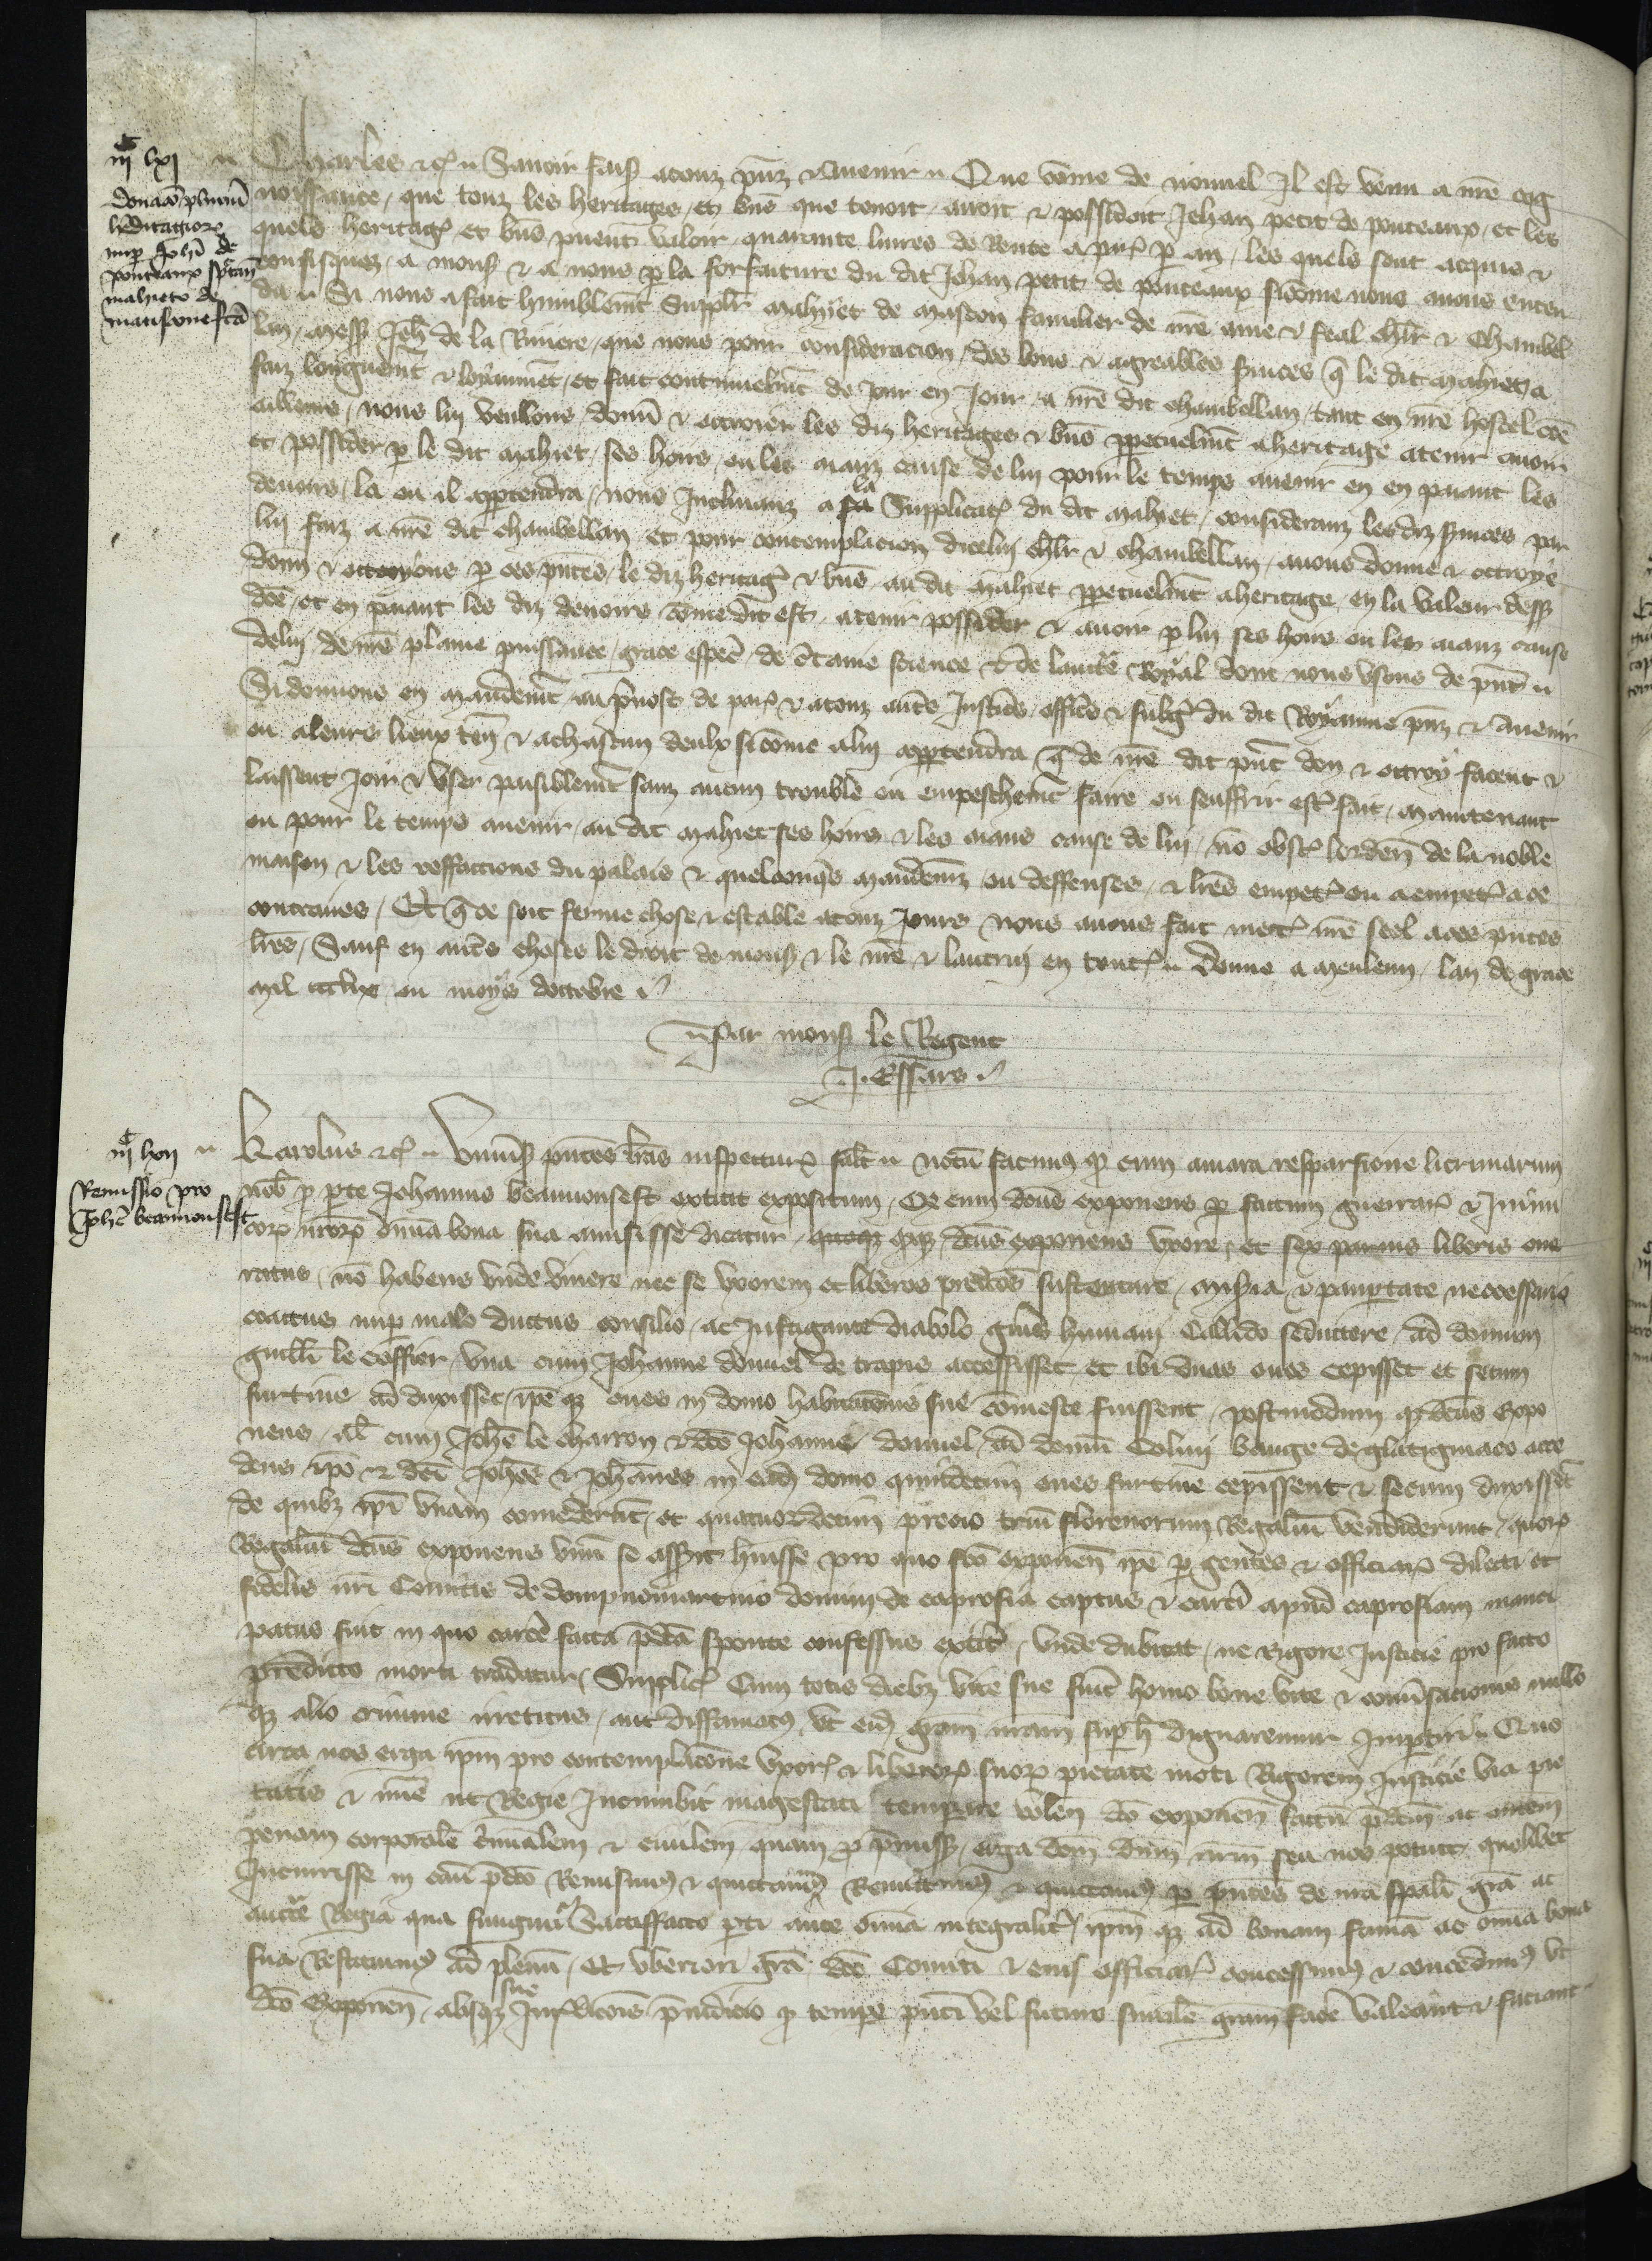 iijᶜ lxj
donacio plurium
hereditagiorum
nuper Johannis de
ponceaux spectancium
mahieto de
mascone facta
Charles etc. Savoir fais. a touz presenz et avenir. Que comme de nouvel Il est venu a nostre cog
noissance, que touz les heritages, et biens que tenoit, avoit et possidoit Jehan petit de ponceaux, et les
quels heritages et biens puent valoir quarante livres de Rente a parisis par an, les quels sont acquis et
confisquez, a mons. et a nous par la forfaiture du dit Jehan petit de ponceaux sicomme nous avons enten
du. Si nous a fait humblement Supplier Mahiet de Mascon familier de nostre ame et feal chevalier et Chambel
lan, Mess. Jeh. de la Riviere, que nous pour consideracion, des bons et agreables services que le dit Mahiet a
faiz longuement et loyaument, et fait continuelment de Jour en Jour, a nostre dit chambellan, tant en nostre hostel comme
ailleurs, nous lui veullons, donner et octroier les diz heritages et biens perpetuelment a heritage a tenir avoir
et possider par le dit Mahiet, ses hoirs, ou les aianz cause de lui pour le temps avenir en en paiant les
devoirs, la ou il appartendra, nous Inclinanz a sa la Supplicacion du dit Mahiet, consideranz les diz services par
lui faiz a nostre dit chambellan et pour contemplacion dicelui chevalier et chambellan, avons donne et octroye
donnons et octroyons par ces presentes, le diz heritages et biens, au dit Mahiet perpetuelment a heritage, en la valeur dess.
dite, et en paiant les diz devoirs comme dit est, a tenir possider et avoir par lui ses hoirs ou les aianz cause
de lui, de nostre plaine puissance, grace especial, de certaine science et de lauctorite Royal dont nous usons de present.
Si donnons en Mandement au prevost de paris et a touz autres Justiciers, officiers et subgiez du dit Royaume presenz et avenir
ou a leurs lieux tenanz et a chascun deulx si comme a lui appartendra que de nostre dit present don et octroy facent et
laissent Joir et user paisiblement sanz aucun trouble ou empeschement faire ou souffrir estre fait, Maintenant
ou pour le temps avenir, au dit Mahiet ses hoirs et les aians cause de lui, non obstant lordenance de la noble
maison et les reffaccions du palais et quelconques Mandemenz ou deffenses, et lettres empetrees ou a empetrer a ce
contraires, Et que ce soit ferme chose et estable a touz Jours nous avons fait mectre nostre seel a ces presentes
lettres, Sauf en autres choses le droit de mons. et le nostre et lautrui en toutes. Donne a Meuleun, lan de grace
Mil ccclix. ou moys doctobre.
Par mons. le Regent
J. Essars.
iijᶜ lxij
Remissio pro
Johanne beaumonsest
Karolus etc. Universis presentes litteras inspecturis salutem. notum facimus quod cum amara resparsione licrimarum
nobis pro parte Johannis beaumonsest extitit expositum, Quod cum dictus exponens per factum guerrarum et Inimi
corum nostrorum omnia bona sua amisisse dicatur, quoque ipseque, dictus exponens uxore, et sex parvis liberis one
ratus, non habens unde vivere nec se uxorem et liberos predictos sustentare, Miseria et paupertate neccessario
coactus nuper malo ductus consilio, ac Instigante diabolo generis humani Callido seductore, ad domum
guillelmi le coffier, una cum Johanne donnel de trapis accessisset, et ibi duas oves cepisset et secum
furtive ad duxisset, ipseque oves in domo habitacionis sue comeste fuissent, postmodum quod dictus Expo
nens, simul cum Johanne le charron et dicto Johanne donnel, ad domum Colini bauge de glatigniaco acce
dens ipse et dicti Johannes et Johannes in eadem domo quindecim oves furtive cepissent et secum duxissent
de quibus ipsi unam comederunt, et quatuordecim precio trium florenorum Regalium vendiderunt, quorum
Regalium dictus exponens unum se asserit habuisse pro quo facto exponens ipse per gentes et officiarios dilecti et
fidelis nostri Comitis de dompnomartino domini de caprosia captus et carceri apud caprosiam manci
patus fuit in quo carcere facta predicta sponte confessus extitit, unde dubitat, ne rigore Justicie pro facto
predicto morti tradatur, Supplicans Cum totis diebus vite sue fuerit homo bone vite et conversacionis nullo
que alio crimine irretitus, aut diffamatus, ut eidem graciam nostram super hoc dignaremur Impertiri. Quo
circa nos erga ipsum pro contemplacione uxoris et liberorum suorum pietate moti Rigorem Justicie via pie
tatis et misericordie ut Regie Incumbit magestati temperare volentes dicto exponenti factum predictum ac omnem
penam corporalem criminalem et civilem quam pro premissis, erga dictum dominum nostrum seu nos potuit quolibet
Incurrisse in casu predicto Remisimus et quictavimus Remittimus et quictamus per presentes de nostra speciali gracia ac
auctoritate Regia qua fungimur Sactisfacto parti ante omnia integraliter, ipsumque ad bonam famam ac omnia bona
sua Restituimus ad plenum, Et uberiori gracia, dicto Comiti et eius officiariis concessimus et concedimus ut
dicto Exponenti, absque sue Jurisdicionis preiudicio pro tempore presenti vel futuro similem graciam facere valeant et faciant